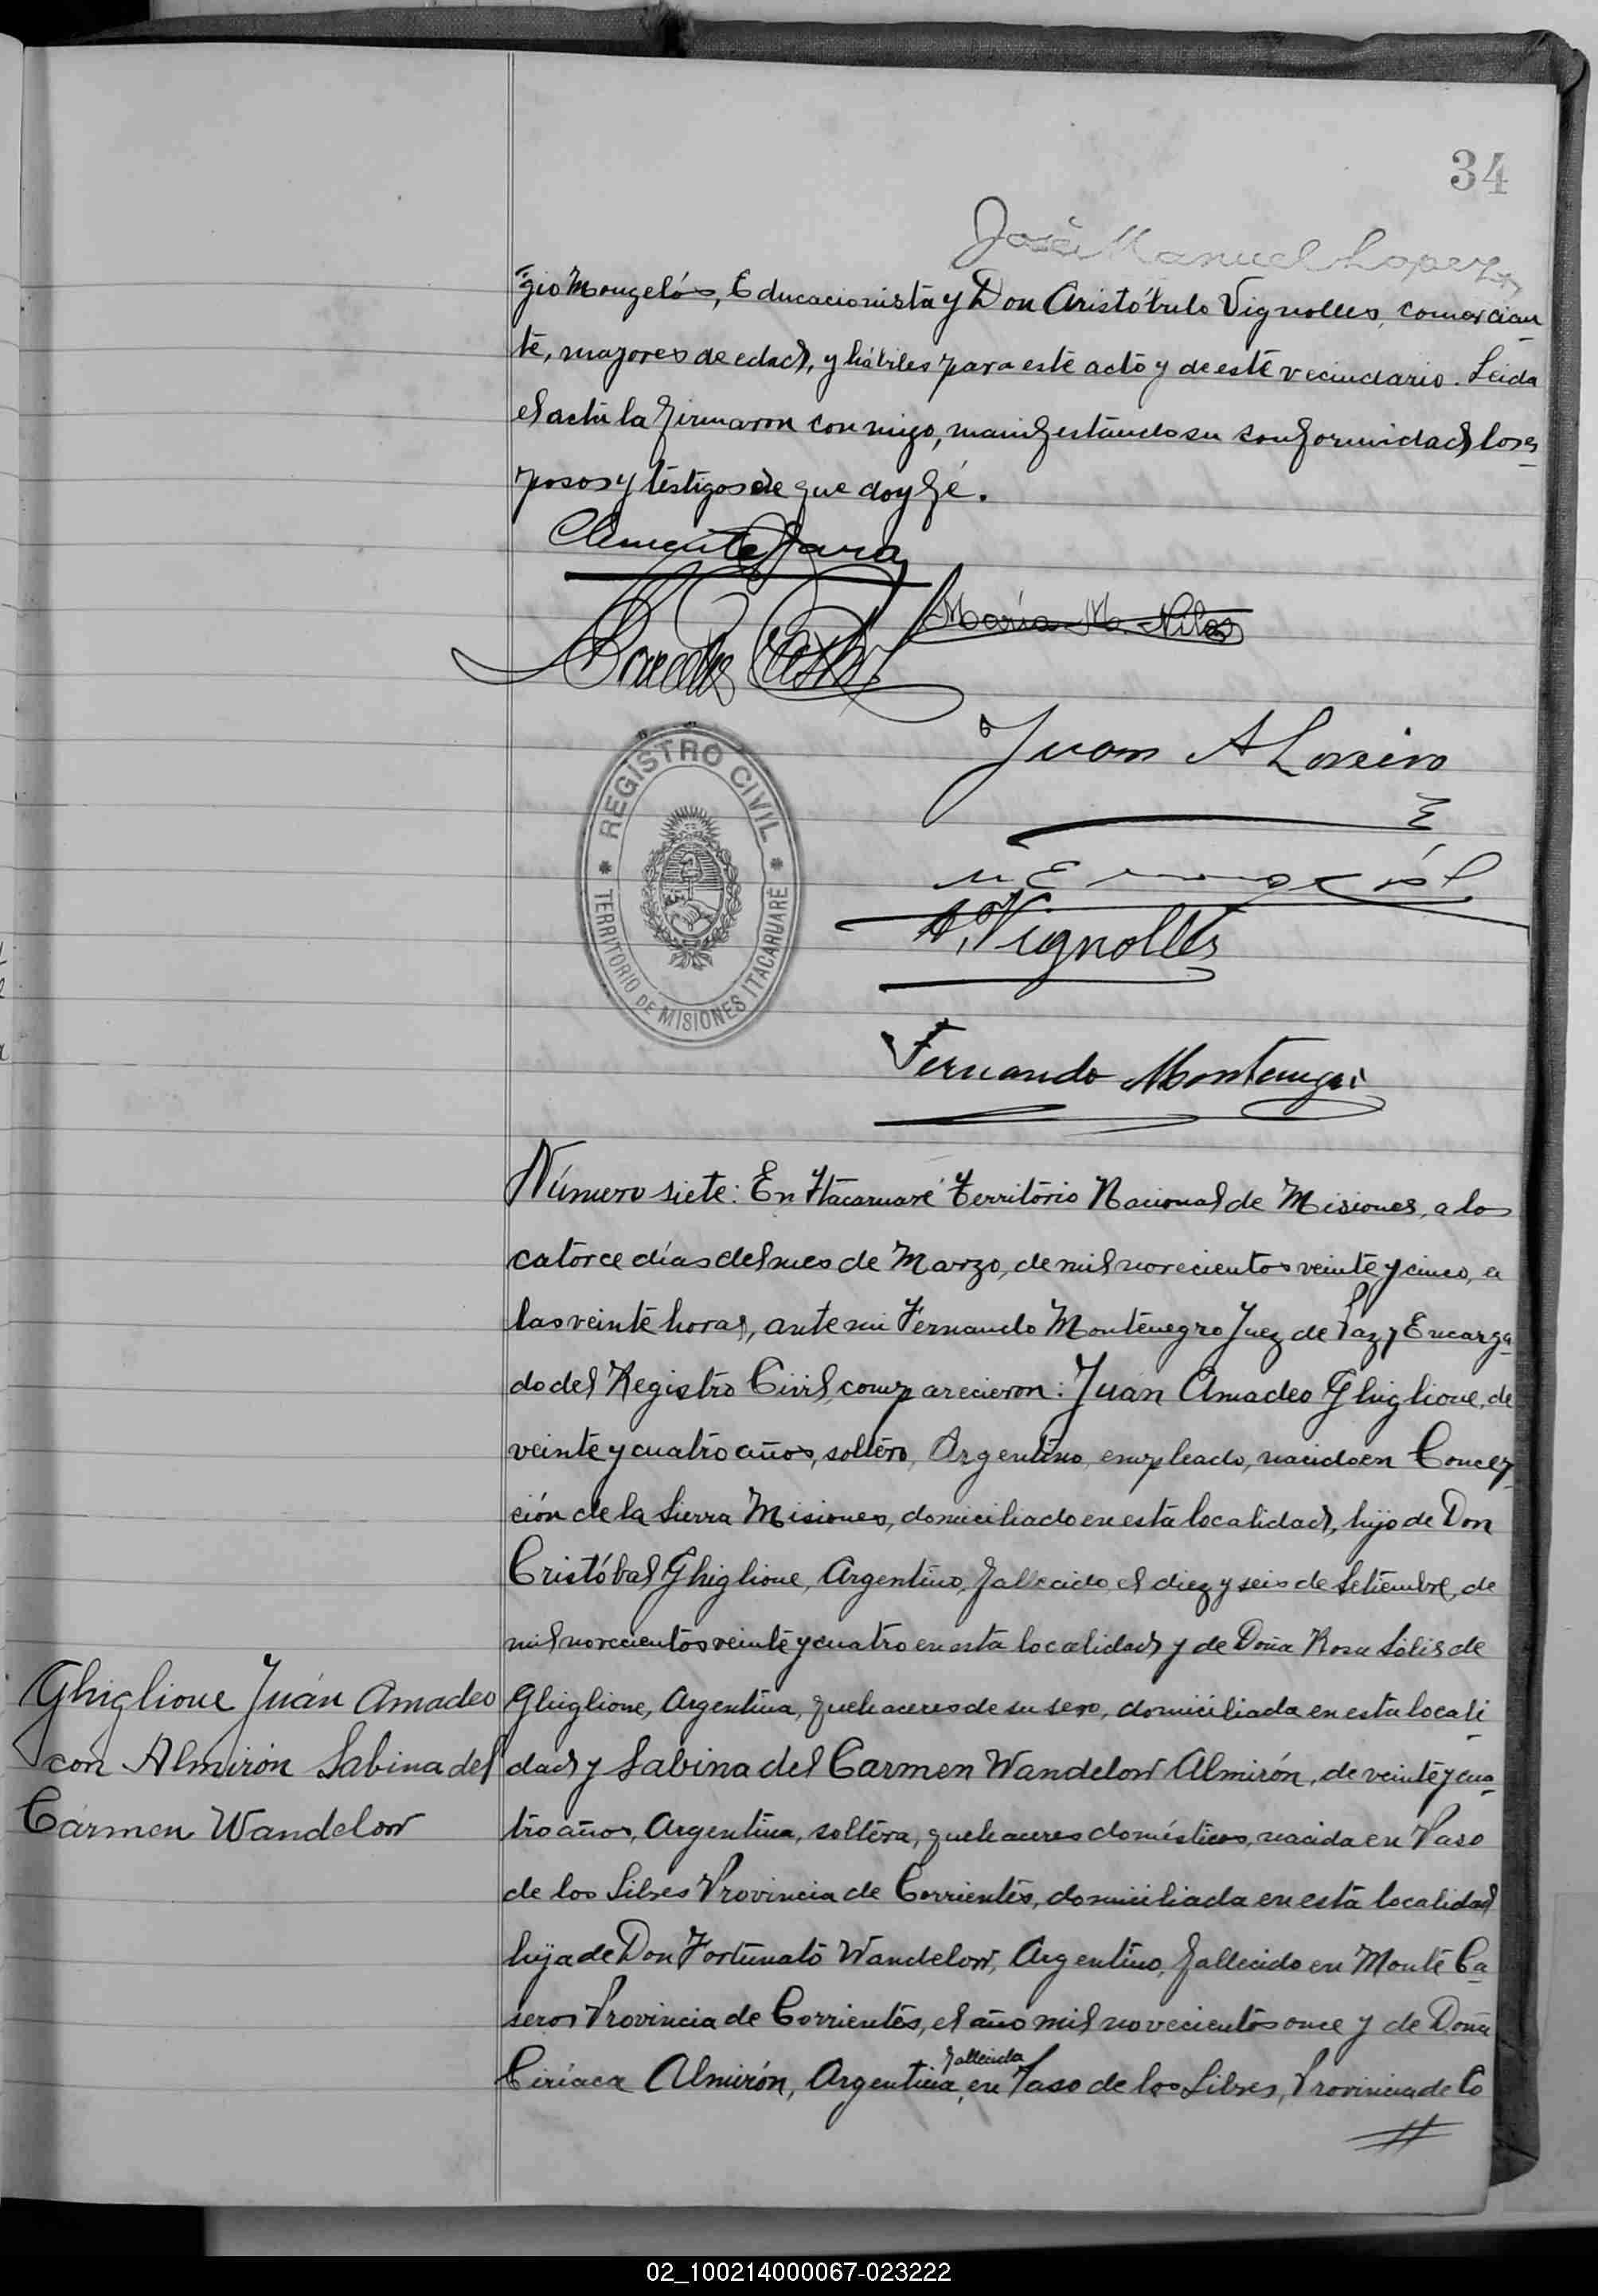 34
José Manuel Lopez
gio Mongelós, Educacionista y Don Aristóbulo Vignolles, comercian
te, mayores de edad, y hábiles para este acto y de este vecindario. Leida
el acta la firmaron con migo, manifestando su conformidad los es
posos y testigos de que doy fé.
Clemente
María M. Niles
Juan A
A. Vignolles
Fernando Montenegro
REGISTRO CIVIL
TERRITORIO DE MISIONES ITACARUARÉ
Número siete: En Itacaruaré Territorio Nacional de Misiones, a los
catorce días del mes de Marzo, de mil novecientos veinte y cinco, a
las veinte horas, ante mi Fernando Montenegro Juez de Paz y Encarga
do del Registro Civil, comparecieron: Juán Amadeo Ghiglione, de
veinte y cuatro años, soltero, Argentino, empleado, nacido en Concep
ción de la Sierra Misiones, domiciliado en esta localidad, hijo de Don
Cristóbal Ghiglione, Argentino, fallecido el diez y seis de Setiembre, de
mil novecientos veinte y cuatro en esta localidad y de Doña Rosa Solis de
Ghiglione, Argentina, quehaceres de su sexo, domiciliada en esta locali
dad y Sabina del Carmen Wandelow Almirón, de veinte y cua
tro años, Argentina, soltera, quehaceres domésticos, nacida en Paso
de los Libres Provincia de Corrientes, domiciliada en esta localidad
hija de Don Fortunato Wandelow, Argentino, fallecido en Monte Ca
seros Provincia de Corrientes, el año mil novecientos once y de Doña
Ciríaca Almirón, Argentina, fallecida en Paso de los Libres, Provincia de Co
Ghiglione Juán Amadeo
con Almirón Sabina del
Cármen Wandelow
02_100214000067-023222